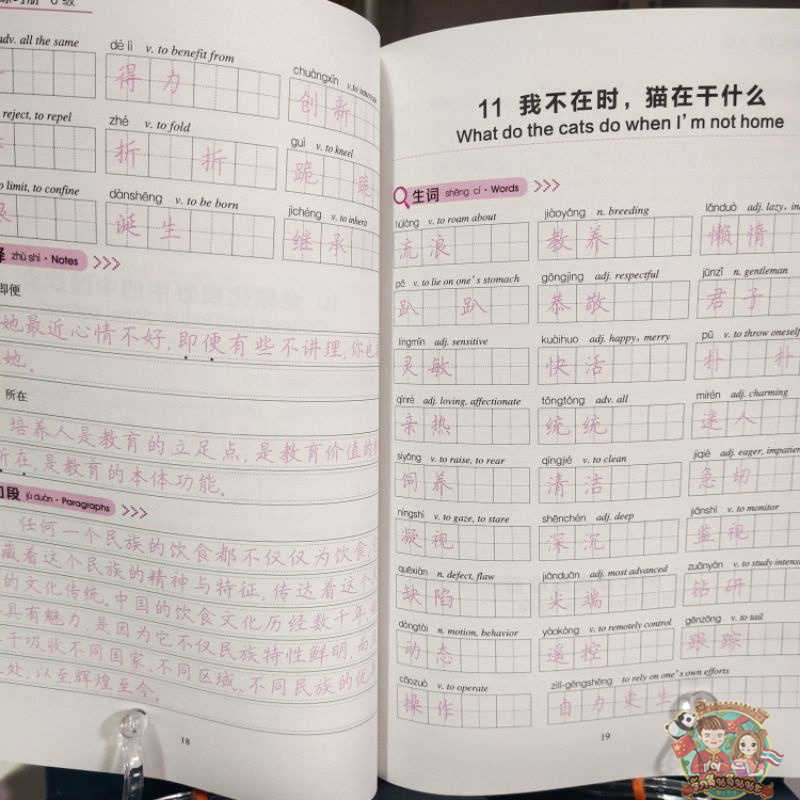 6 级
adv. all the same
dé lì v. to benefit from
得力
chuàngxīn v. to innovate
创新
reject, to repel
zhé v. to fold
折 折
guì v. to kneel
跪 跪
to limit, to confine
dànshēng v. to be born
诞生
jìchéng v. to inherit
继承
释 zhù shì · Notes
即便
她最近心情不好,即便有些不讲理,你也
她。
所在
培养人是教育的立足点,是教育价值的
所在,是教育的本体功能。
段 jù duàn · Paragraphs
任何一个民族的饮食都不仅仅为饮食,
藏着这个民族的精神与特征,传达着这个
的文化传统。中国的饮食文化历经数千年,
具有魅力,是因为它不仅民族特性鲜明,而
于吸收不同国家、不同区域、不同民族的优
处,以至辉煌至今。
18
11 我不在时,猫在干什么
What do the cats do when I'm not home
生词 shēng cí · Words
liúlàng v. to roam about
流浪
jiàoyǎng n. breeding
教养
lǎnduò adj. lazy,
懒惰
pā v. to lie on one's stomach
趴 趴
gōngjìng adj. respectful
恭敬
jūnzǐ n. gentleman
君子
língmǐn adj. sensitive
灵敏
kuàihuo adj. happy, merry
快活
pū v. to throw oneself
扑 扑
qīnrè adj. loving, affectionate
亲热
tǒngtǒng adv. all
统统
mírén adj. charming
迷人
sìyǎng v. to raise, to rear
饲养
qīngjié v. to clean
清洁
jíqiè adj. eager, impatient
急切
níngshì v. to gaze, to stare
凝视
shēnchén adj. deep
深沉
jiānshì v. to monitor
监视
quēxiàn n. defect, flaw
缺陷
jiānduān adj. most advanced
尖端
zuānyán v. to study
钻研
dòngtài n. motion, behavior
动态
yáokòng v. to remotely control
遥控
gēnzōng v. to tail
跟踪
cāozuò v. to operate
操作
zìlì-gēngshēng to rely on one's own efforts
自力更生
19